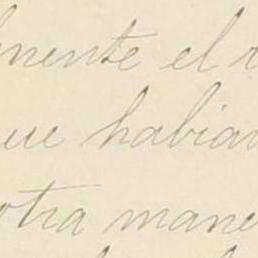 nente el
que habian
otra mane